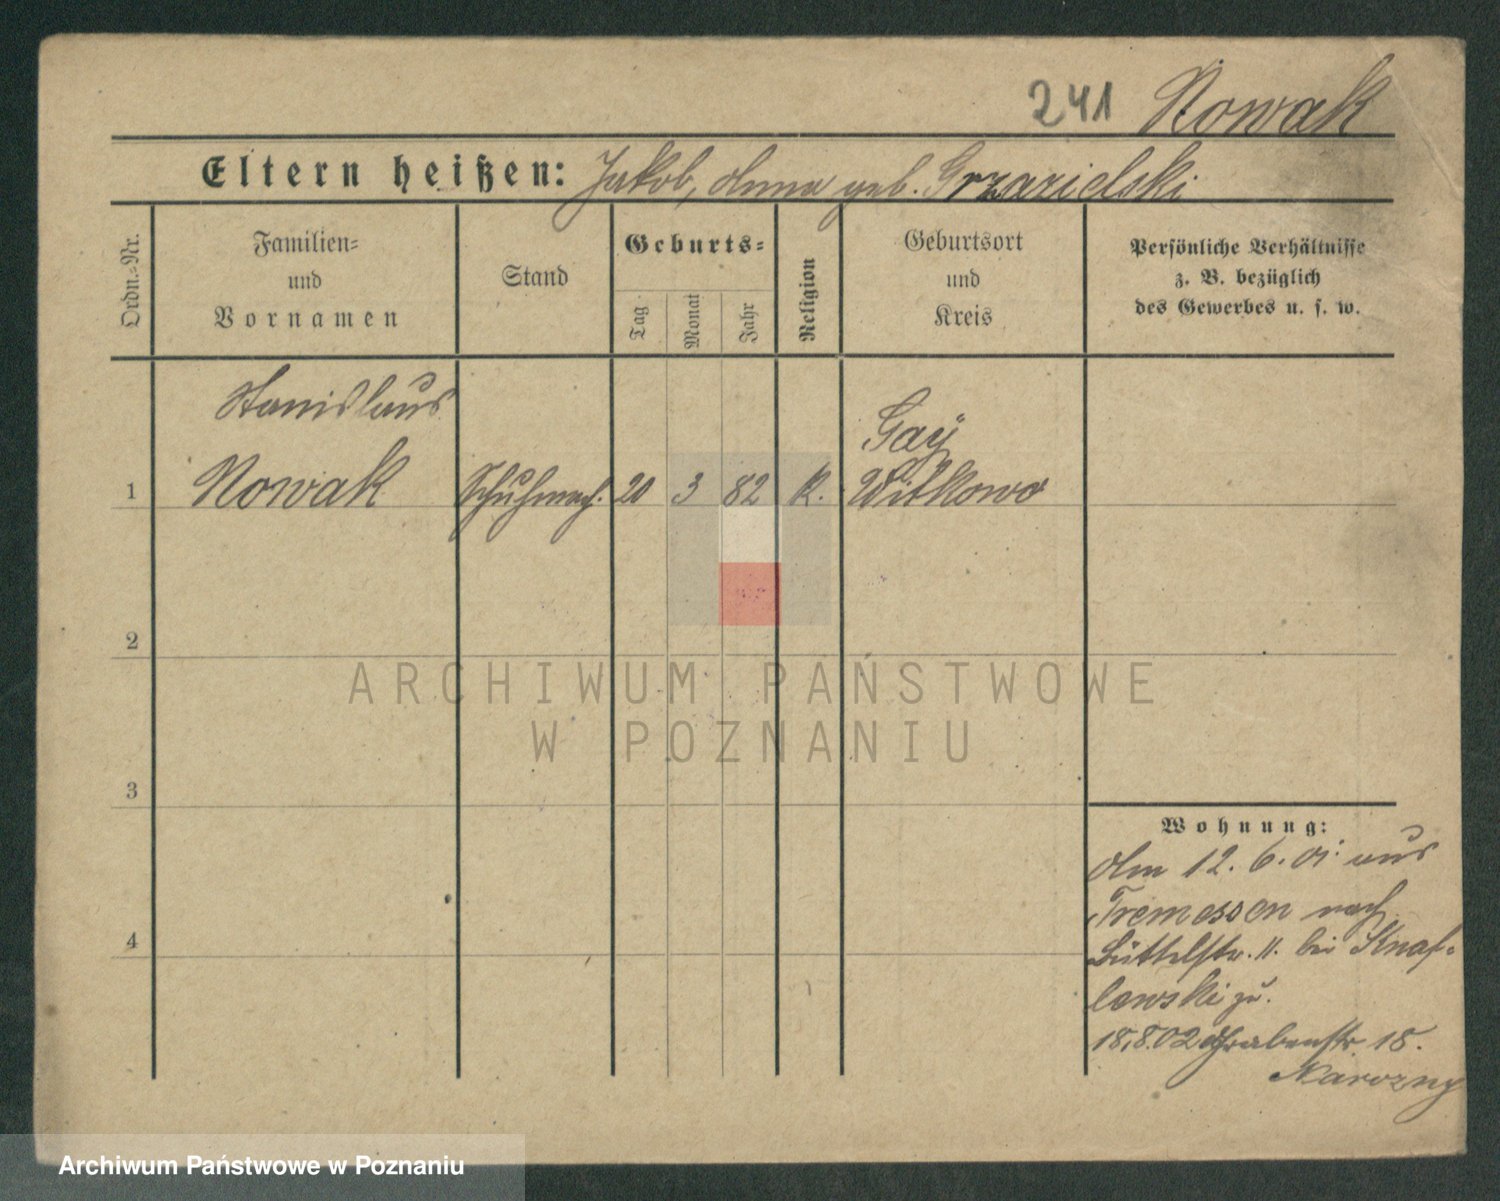 241 Nowak
Eltern heißen: Jakob, Anna geb. Grzazielski
Ordn.-Nr.
Familien-
und
Vornamen
Stand
Geburts-
Tag
Monat
Jahr
Religion
Geburtsort
und
Kreis
Persönliche Verhältnisse
z. B. bezüglich
des Gewerbes u. s. w.
Stanislaus
Gay
1 Nowak Schuhmach. 20 3 82 k. Witkowo
2
3
4
Wohnung:
Am 12. 6. 01. aus
Tremessen nach
Büttelstr. 11. bei Knaf-
lewski zu.
18.8.02 Grabenstr 18.
Marozny
ARCHIWUM PAŃSTWOWE
W POZNANIU
Archiwum Państwowe w Poznaniu